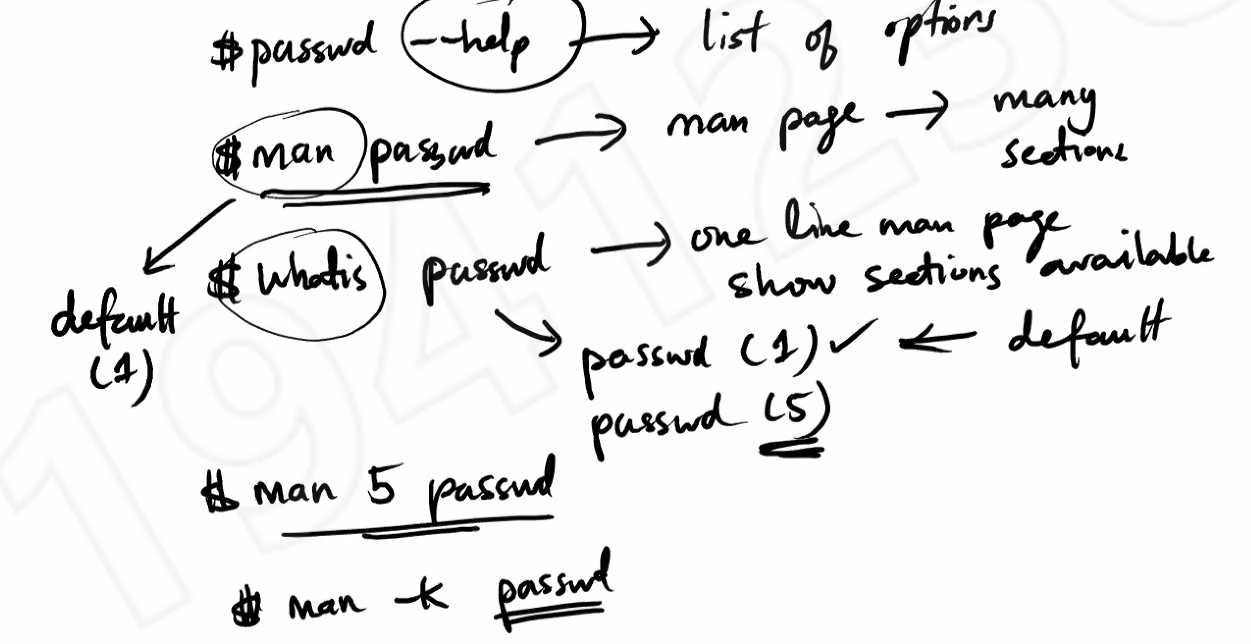 $ passwd --help → list of options
$ man passwd → man page → many sections
$ whatis passwd → one line man page
show sections available
default (1)
passwd (1) ✓ ← default
passwd (5)
$ man 5 passwd
$ man -k passwd